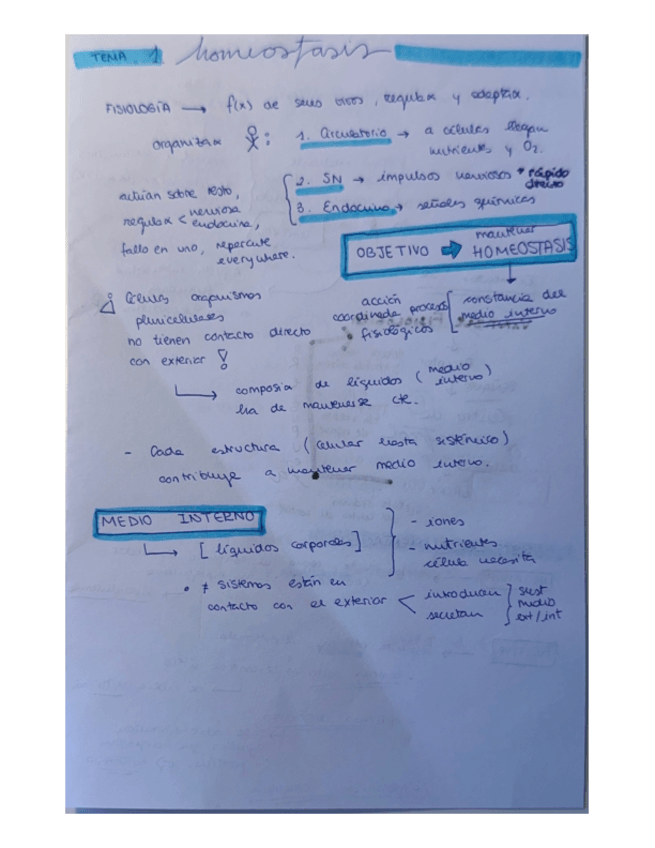 TEMA 1 homeostasis
FISIOLOGÍA → f(x) de seres vivos, regular y adaptar.
organizar : 1. Circulatorio → a células llegan
nutrientes y O2.
2. SN → impulsos nerviosos * rápido
directo
3. Endocrino → señales químicas
actúan sobre resto,
regular < nerviosa
endocrina,
fallo en uno, repercute
everywhere.
OBJETIVO → mantener
HOMEOSTASIS
acción
coordinada procesos
fisiológicos
constancia del
medio interno
¡ Células organismos
pluricelulares
no tienen contacto directo
con exterior !
composic de líquidos (medio
interno)
ha de mantenerse cte.
- Cada estructura (celular hasta sistémico)
contribuye a mantener medio interno.
MEDIO INTERNO
[líquidos corporales]
- iones
- nutrientes
célula necesita
• ≠ sistemas están en
contacto con el exterior < introducen
secretan
sust
medio
ext/int